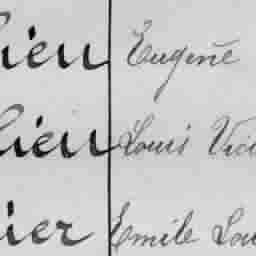 lieu Eugène
lieu Louis Vic
ier Emile Lou